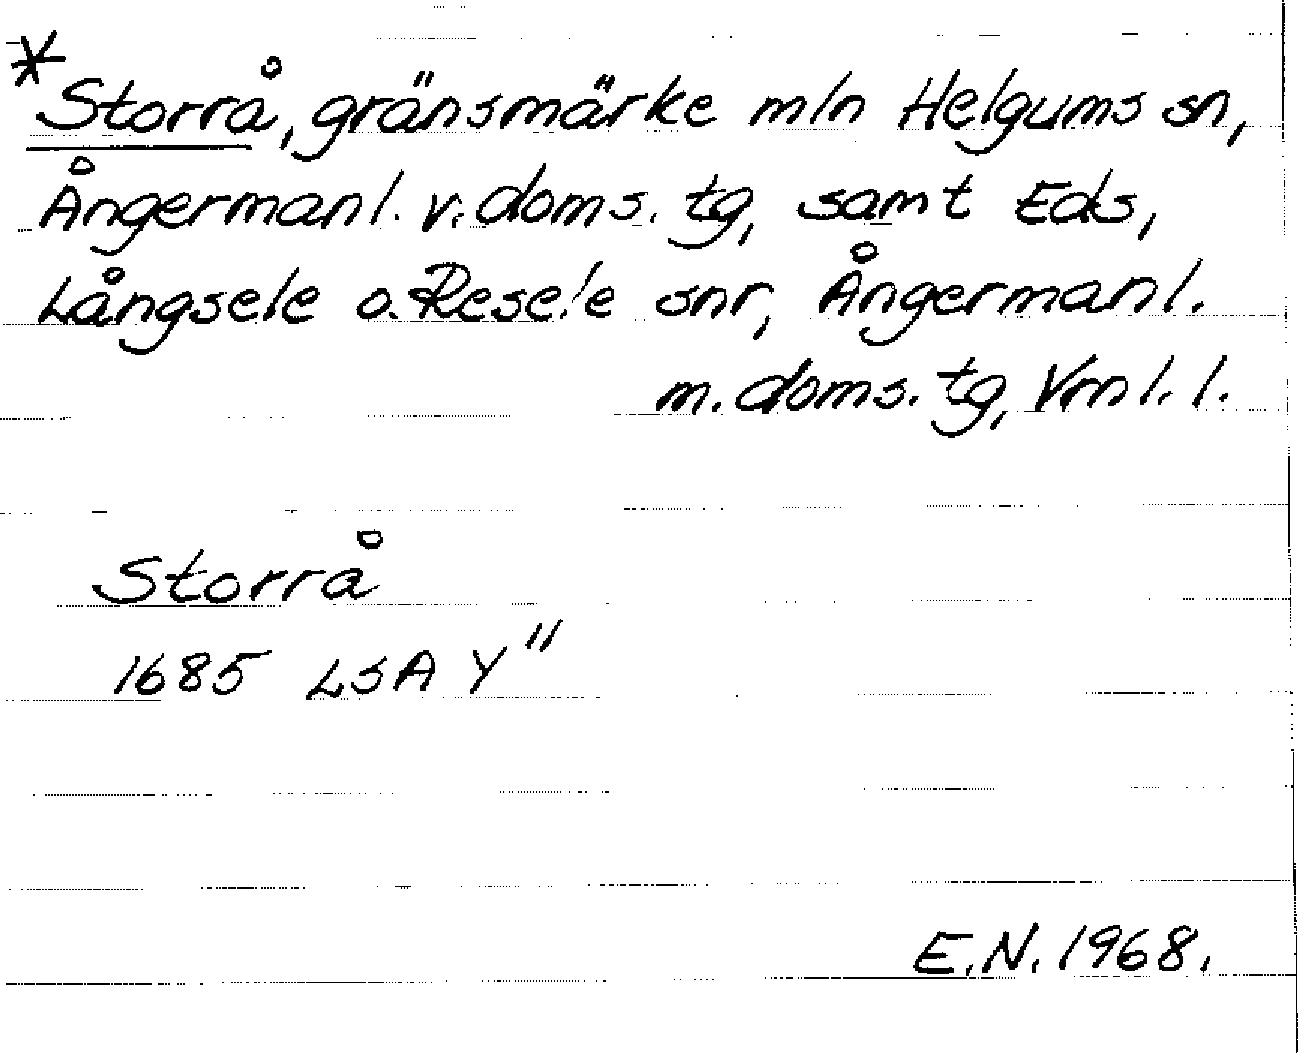 *Storrå, gränsmärke mln Helgums sn,
Ångermanl. v. doms. tg, samt Eds,
Långsele o. Resele snr, Ångermanl.
m. doms. tg, Vrnl. l.
Storrå
1685 LSA Y"
E.N. 1968.